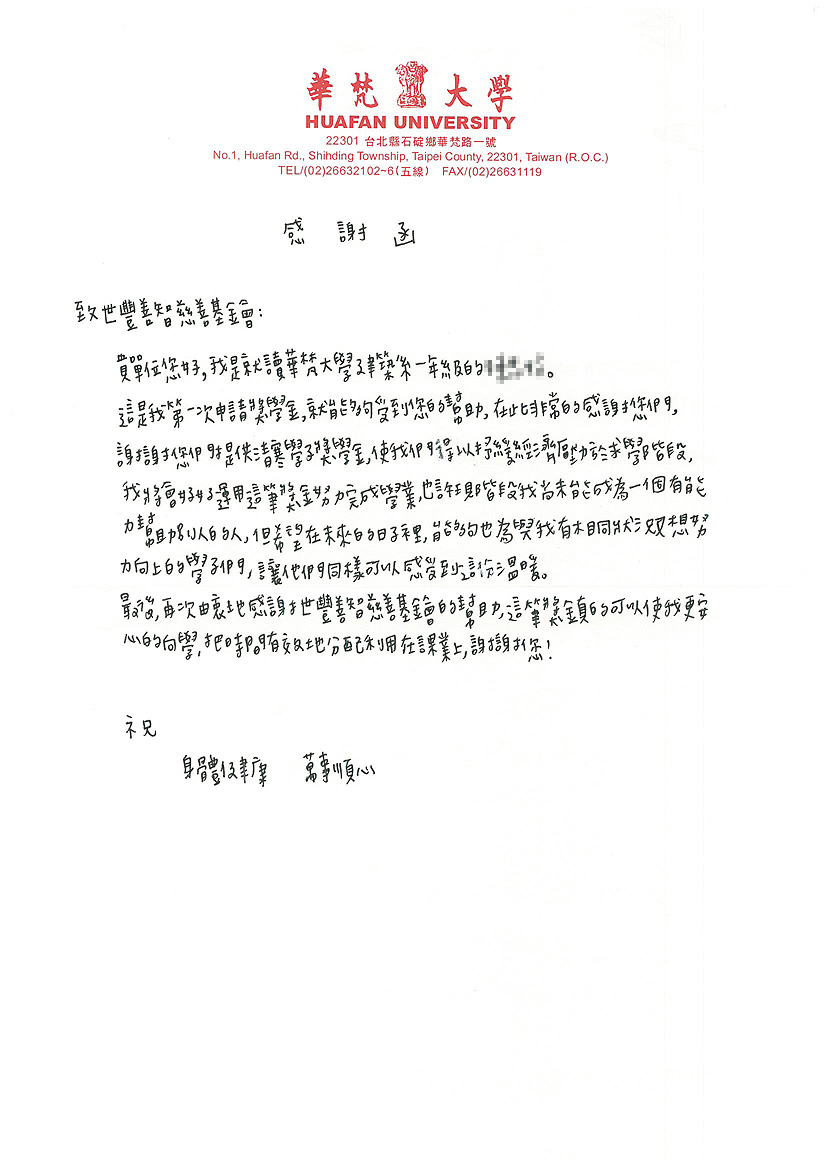 華梵大學
HUAFAN UNIVERSITY
22301 台北縣石碇鄉華梵路一號
No.1, Huafan Rd., Shihding Township, Taipei County, 22301, Taiwan (R.O.C.)
TEL/(02)26632102~6(五線) FAX/(02)26631119
感謝函
致世豐善智慈善基金會:
貴單位您好,我是就讀華梵大學建築系一年級的。
這是我第一次申請獎學金,就能夠受到您的幫助,在此非常的感謝您們,
謝謝您們提供清寒學子獎學金,使我們得以紓緩經濟壓力於求學階段,
我將會好好運用這筆獎金努力完成學業,也許在即階段我尚未能成為一個有能
力幫助別人的人,但希望在未來的日子裡,能夠也為與我有相同狀況想努
力向上的學子們,讓他們同樣可以感受到這份溫暖。
最後,再次由衷地感謝世豐善智慈善基金會的幫助,這筆獎金真的可以使我更安
心的向學,把時間有效地分配利用在課業上,謝謝您!
祝
身體健康 萬事順心